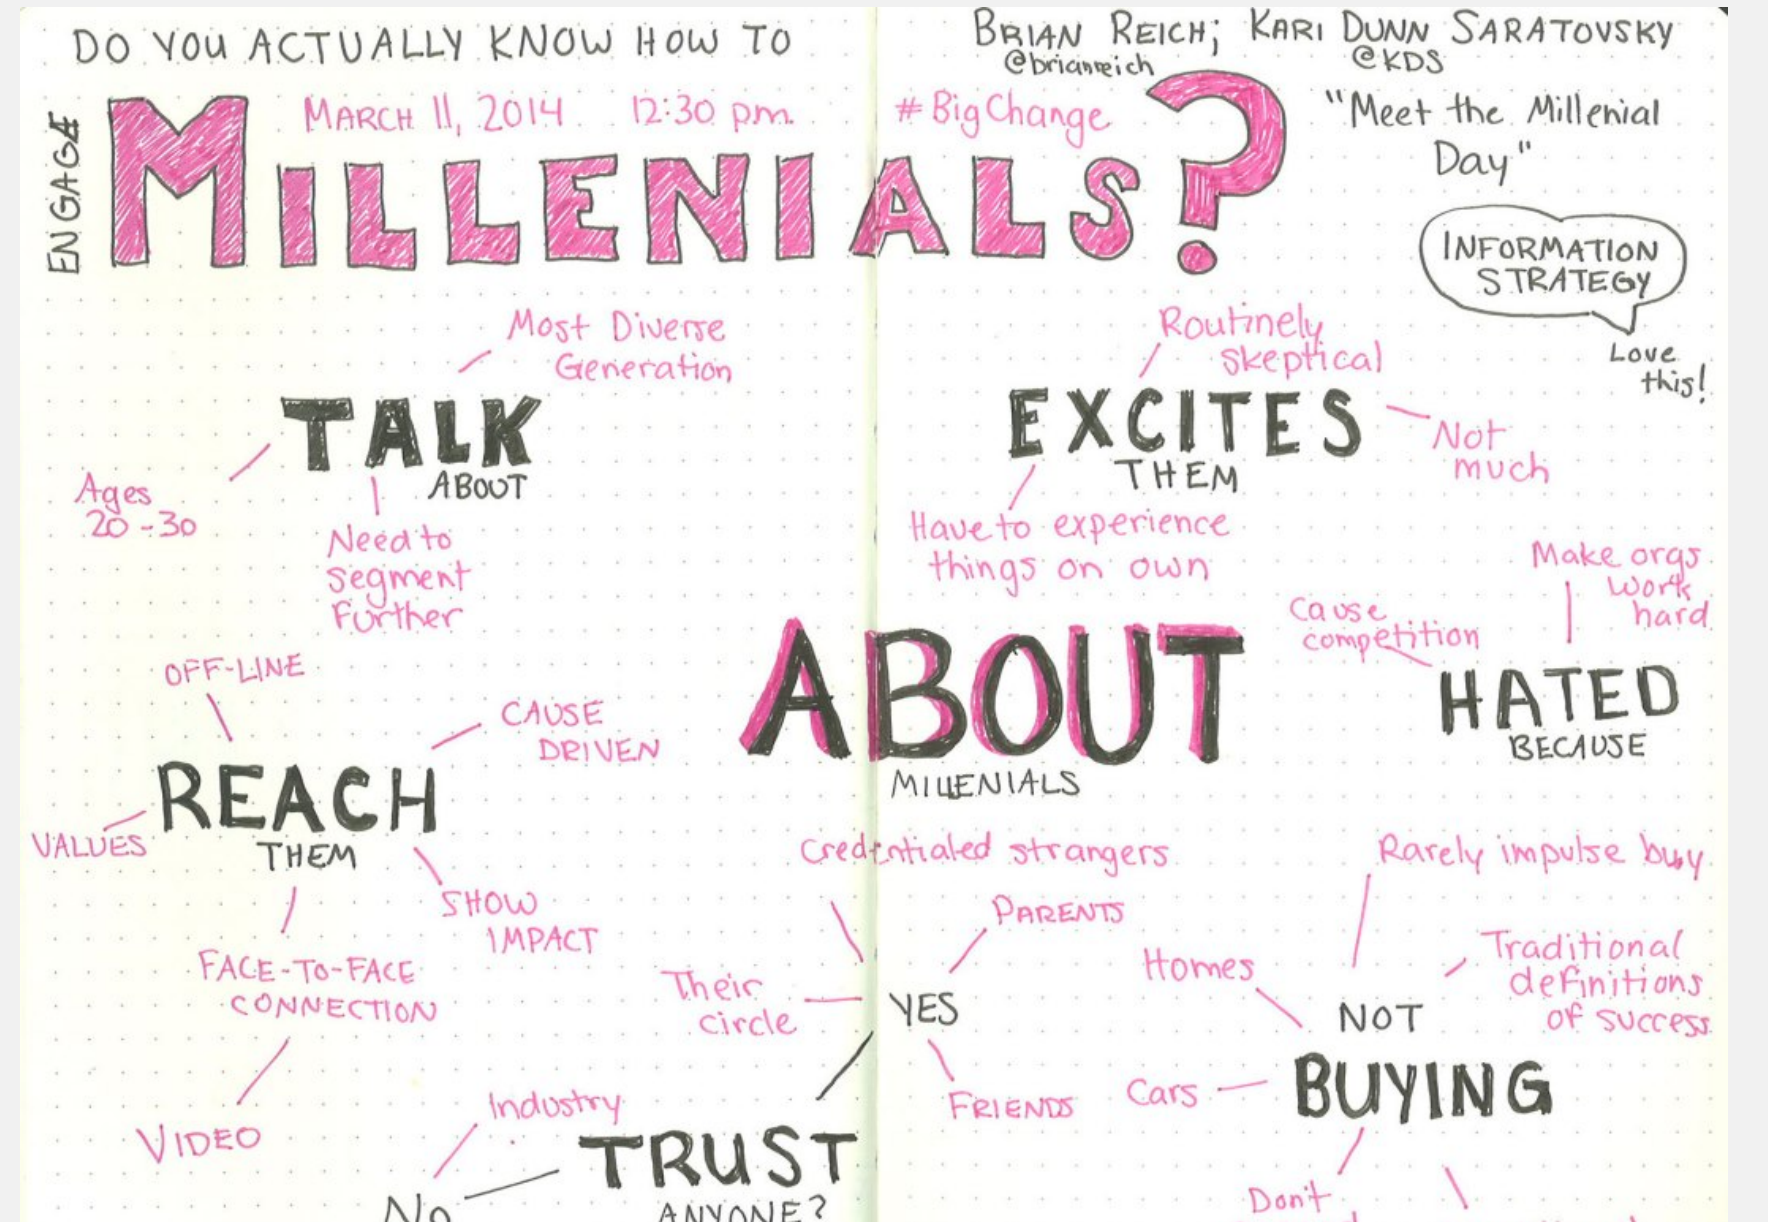 DO YOU ACTUALLY KNOW HOW TO
ENGAGE
MILLENIALS?
MARCH 11, 2014 12:30 pm.
#BigChange
BRIAN REICH; KARI DUNN SARATOVSKY
@brianreich @KDS
"Meet the Millenial
Day"
INFORMATION
STRATEGY
Love
this!
Most Diverse
Generation
TALK
ABOUT
Ages
20-30
Need to
segment
Further
Routinely
skeptical
EXCITES
THEM
Not
much
Have to experience
things on own
Make orgs
work
hard
Cause
competition
HATED
BECAUSE
ABOUT
MILLENIALS
OFF-LINE
CAUSE
DRIVEN
REACH
THEM
VALUES
SHOW
IMPACT
FACE-TO-FACE
CONNECTION
VIDEO
Credentialed strangers
PARENTS
Their
circle
YES
FRIENDS
Industry
TRUST
ANYONE?
No
Rarely impulse buy
Homes
Traditional
definitions
of success
NOT
BUYING
Cars
Don't